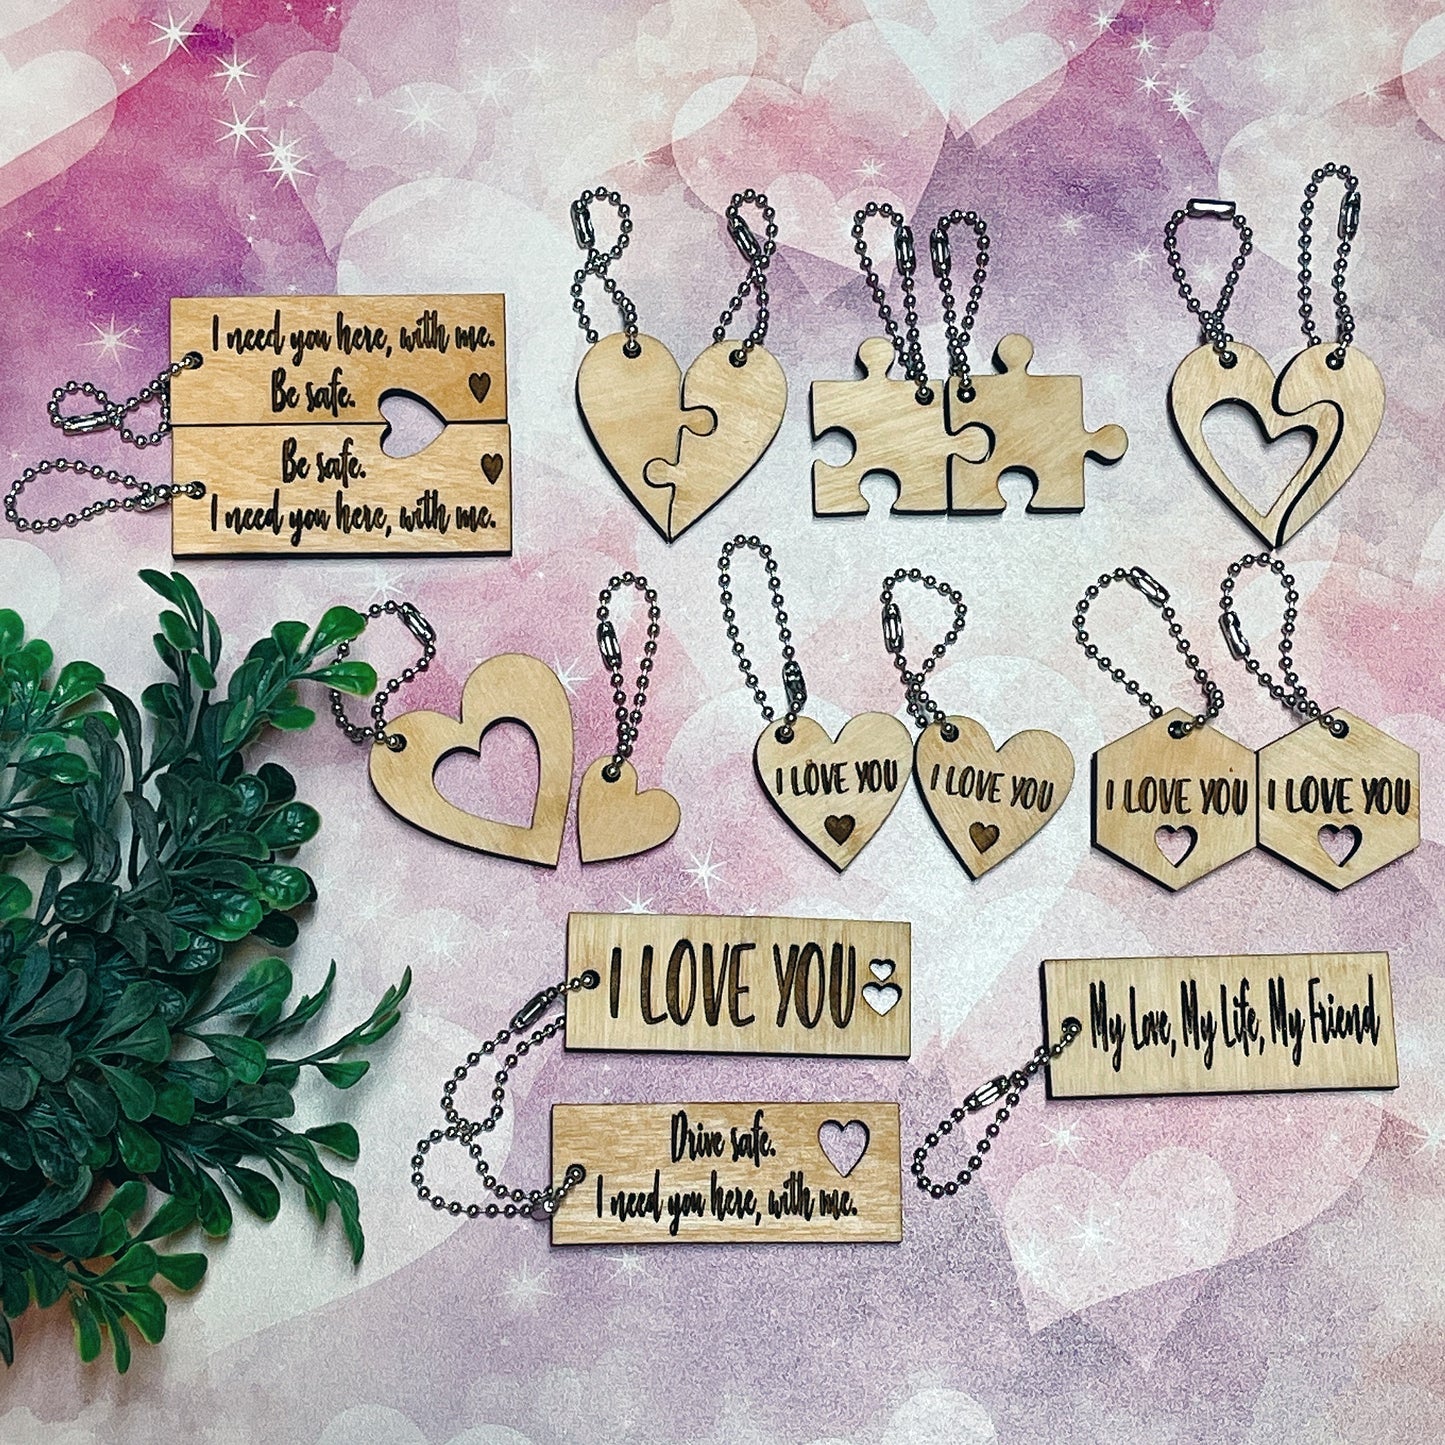 I need you here, with me.
Be safe.
Be safe.
I need you here, with me.
I LOVE YOU
I LOVE YOU
I LOVE YOU
I LOVE YOU
I LOVE YOU
My Love, My Life, My Friend
Drive safe.
I need you here, with me.